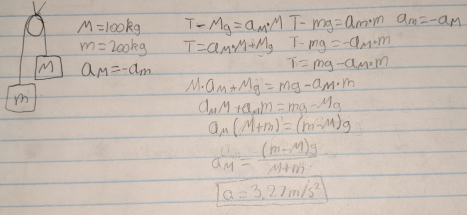 M=100kg
m=200kg
a_M=-a_m
M
m
T-Mg=a_M·M T-mg=a_m·m a_m=-a_M
T=a_M·M+Mg T-mg=-a_M·m
T=mg-a_M·m
M·a_M+Mg=mg-a_M·m
a_M M+a_M m=mg-Mg
a_M(M+m)=(m-M)g
a_M=(m-M)g/M+m
a=3,27m/s²